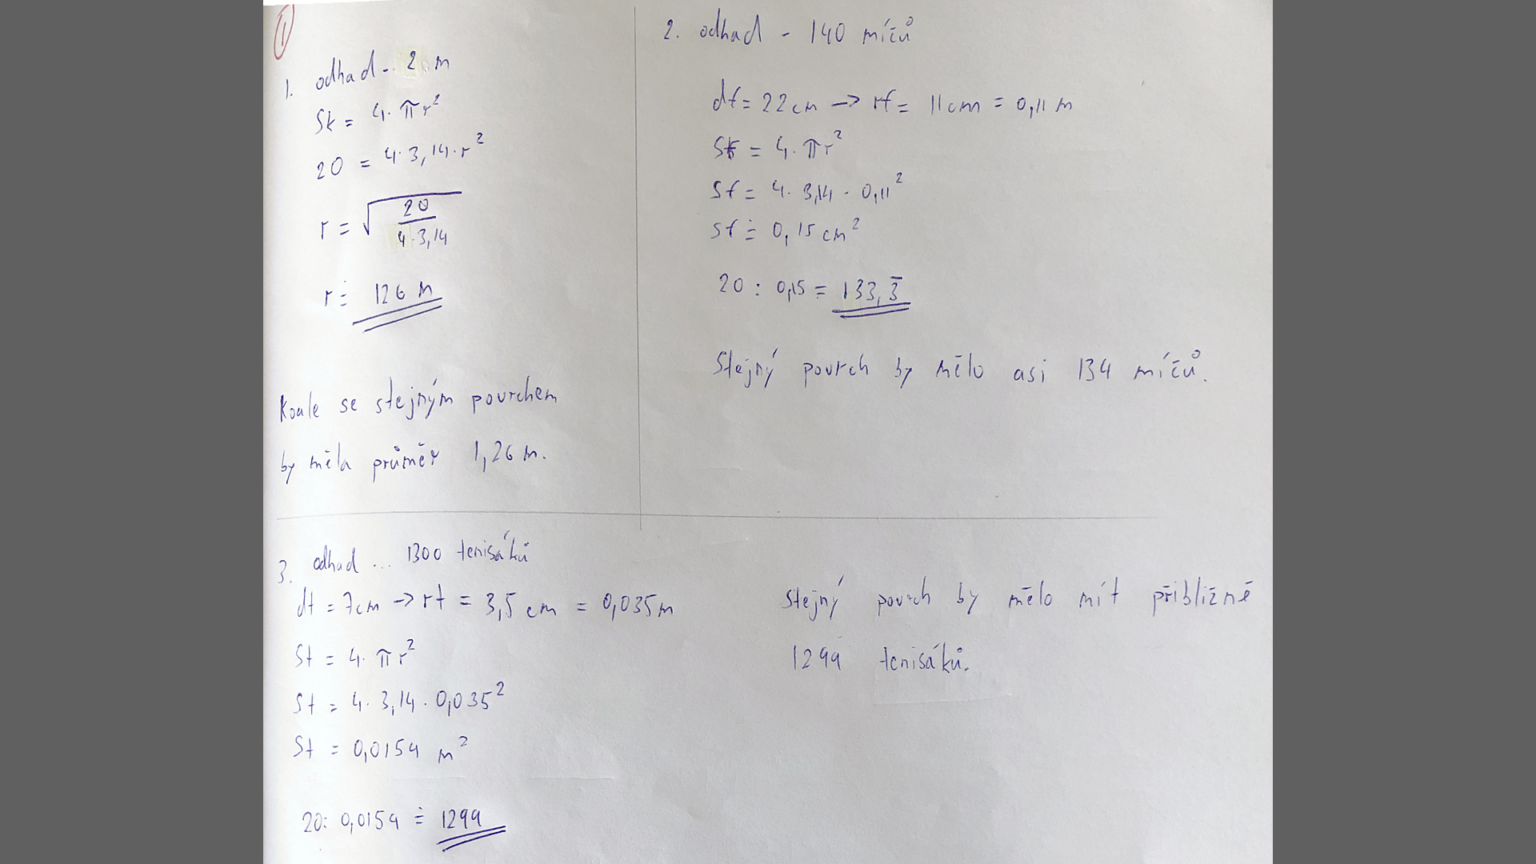 1
1. odhad.. 2 m
Sk = 4. πr²
20 = 4.3,14.r²
r = √20/4.3,14
r ≐ 126 m
Koule se stejným povrchem
by měla průměr 1,26 m.
2. odhad - 140 míčů
df = 22 cm -> rf = 11 cm = 0,11 m
Sf = 4. πr²
Sf = 4. 3,14 . 0,11²
Sf ≐ 0,15 cm²
20 : 0,15 = 133,3̅
Stejný povrch by mělo asi 134 míčů.
3. odhad ... 1300 tenisáků
dt = 7cm -> rt = 3,5 cm = 0,035m
St = 4. πr²
St = 4. 3,14 . 0,035²
St = 0,0154 m²
20: 0,0154 ≐ 1299
Stejný povrch by mělo mít přibližně
1299 tenisáků.